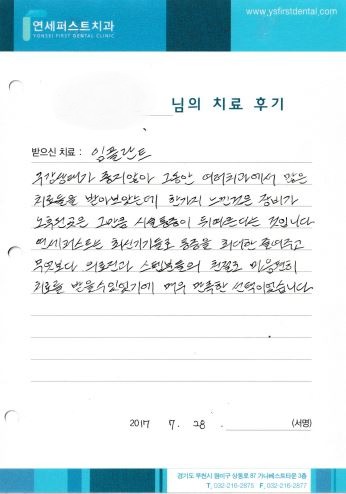 연세퍼스트치과
YONSEI FIRST DENTAL CLINIC
www.ysfirstdental.com
님의 치료 후기
받으신 치료 : 임플란트
구강상태가 좋지않아 그동안 여러치과에서 많은
치료들을 받아보았는데 한가지 느낀점은 장비가
노후된곳은 그만큼 시술통증이 뒤따른다는 것입니다
연세퍼스트는 최신기기들로 통증을 최대한 줄여주고
무엇보다 의료진과 스텝분들의 친절로 마음편히
치료를 받을수있었기에 매우 만족한 선택이었습니다
2017 7. 28. (서명)
경기도 부천시 원미구 상동로 87 가나베스트타운 3층
T. 032-216-2875 F. 032-216-2877